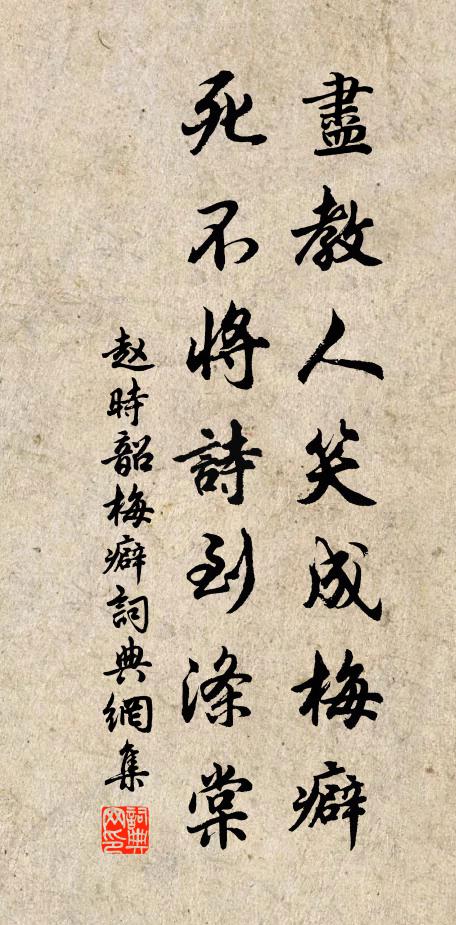 盡教人笑成梅癖
死不將詩到涤棠
赵時韶梅癖詞典網集
詞典網印